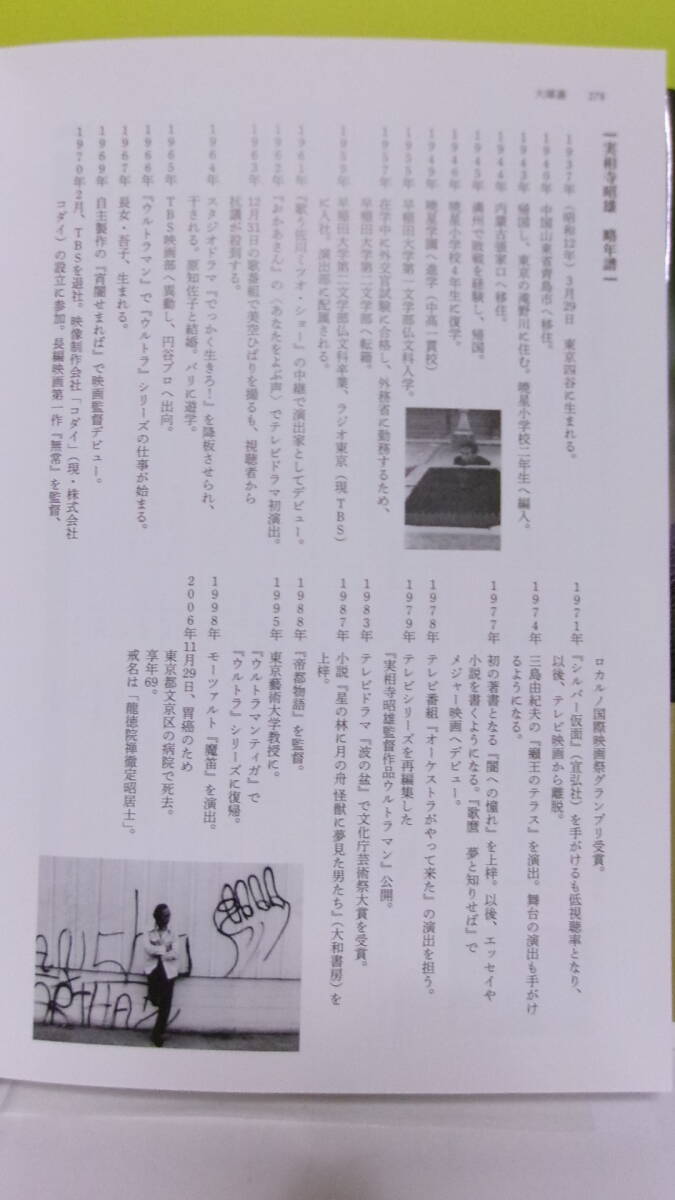 夫婦茶 279
実相寺昭雄 略年譜
1937年(昭和12年)3月29日 東京四谷に生まれる。
1940年 中国山東省青島市へ移住。
1943年 帰国し、東京の滝野川に住む。暁星小学校二年生へ編入。
1944年 内蒙古張家口へ移住。
1945年 満州で敗戦を経験し、帰国。
1946年 暁星小学校4年生に復学。
1949年 暁星学園へ進学(中高一貫校)
1955年 早稲田大学第一文学部仏文科入学。
1957年 在学中に外交官試験に合格し、外務省に勤務するため、
早稲田大学第二文学部へ転籍。
1959年 早稲田大学第二文学部仏文科卒業、ラジオ東京(現TBS)
に入社。演出部に配属される。
1961年 『歌う佐川ミツオ・ショー』の中継で演出家としてデビュー。
1962年 『おかあさん』の〈あなたをよぶ声〉でテレビドラマ初演出。
1963年 12月31日の歌番組で美空ひばりを撮るも、視聴者から
抗議が殺到する。
1964年 スタジオドラマ『でっかく生きろ!』を降板させられ、
干される。原知佐子と結婚。パリに遊学。
1965年 TBS映画部へ異動し、円谷プロへ出向。
1966年 『ウルトラマン』で『ウルトラ』シリーズの仕事が始まる。
1967年 長女・吾子、生まれる。
1969年 自主製作の『宵闇せまれば』で映画監督デビュー。
1970年2月、TBSを退社。映像制作会社「コダイ」(現・株式会社
コダイ)の設立に参加。長編映画第一作『無常』を監督、
ロカルノ国際映画祭グランプリ受賞。
1971年 『シルバー仮面』(宣弘社)を手がけるも低視聴率となり、
以後、テレビ映画から離脱。
1974年 三島由紀夫の『癩王のテラス』を演出。舞台の演出も手がけ
るようになる。
1977年 初の著書となる『闇への憧れ』を上梓。以後、エッセイや
小説を書くようになる。『歌麿 夢と知りせば』で
メジャー映画へデビュー。
1978年 テレビ番組『オーケストラがやって来た』の演出を担う。
1979年 テレビシリーズを再編集した
『実相寺昭雄監督作品ウルトラマン』公開。
1983年 テレビドラマ『波の盆』で文化庁芸術祭大賞を受賞。
1987年 小説『星の林に月の舟 怪獣に夢見た男たち』(大和書房)を
上梓。
1988年 『帝都物語』を監督。
1995年 東京藝術大学教授に。
『ウルトラマンティガ』で
『ウルトラ』シリーズに復帰。
1998年 モーツァルト『魔笛』を演出。
2006年11月29日、胃癌のため
東京都文京区の病院で死去。
享年69。
戒名は「龍徳院禅徹定昭居士」。